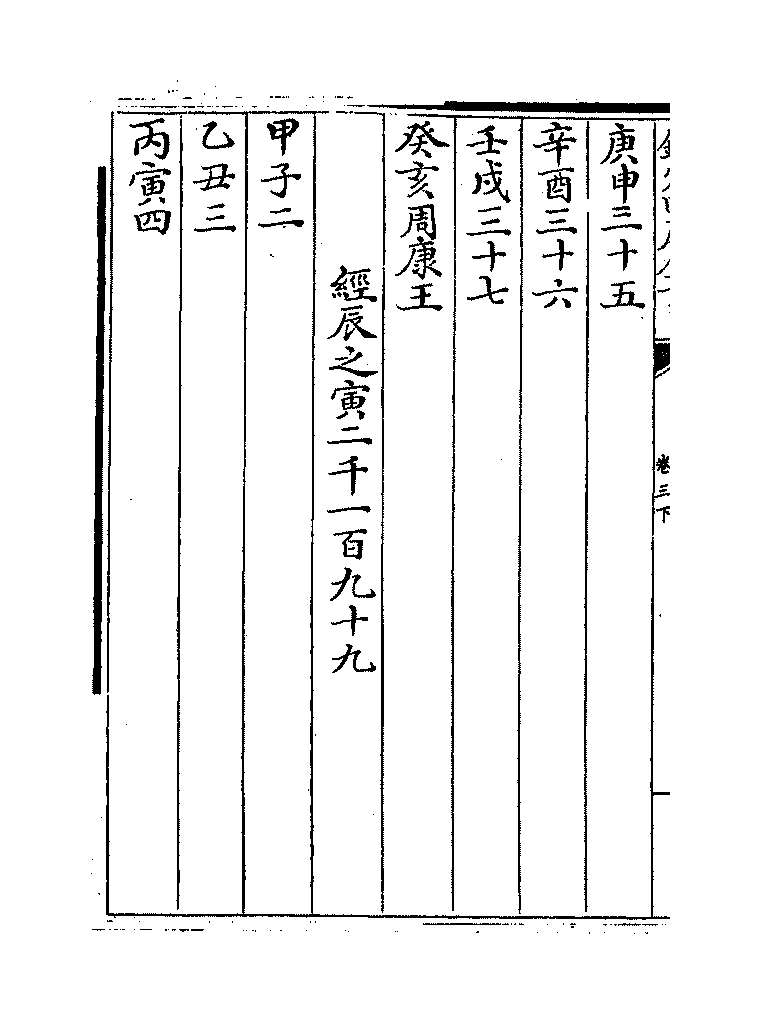 庚申三十五
辛酉三十六
壬戌三十七
癸亥周康王
經辰之寅二千一百九十九
甲子二
乙丑三
丙寅四
卷三下